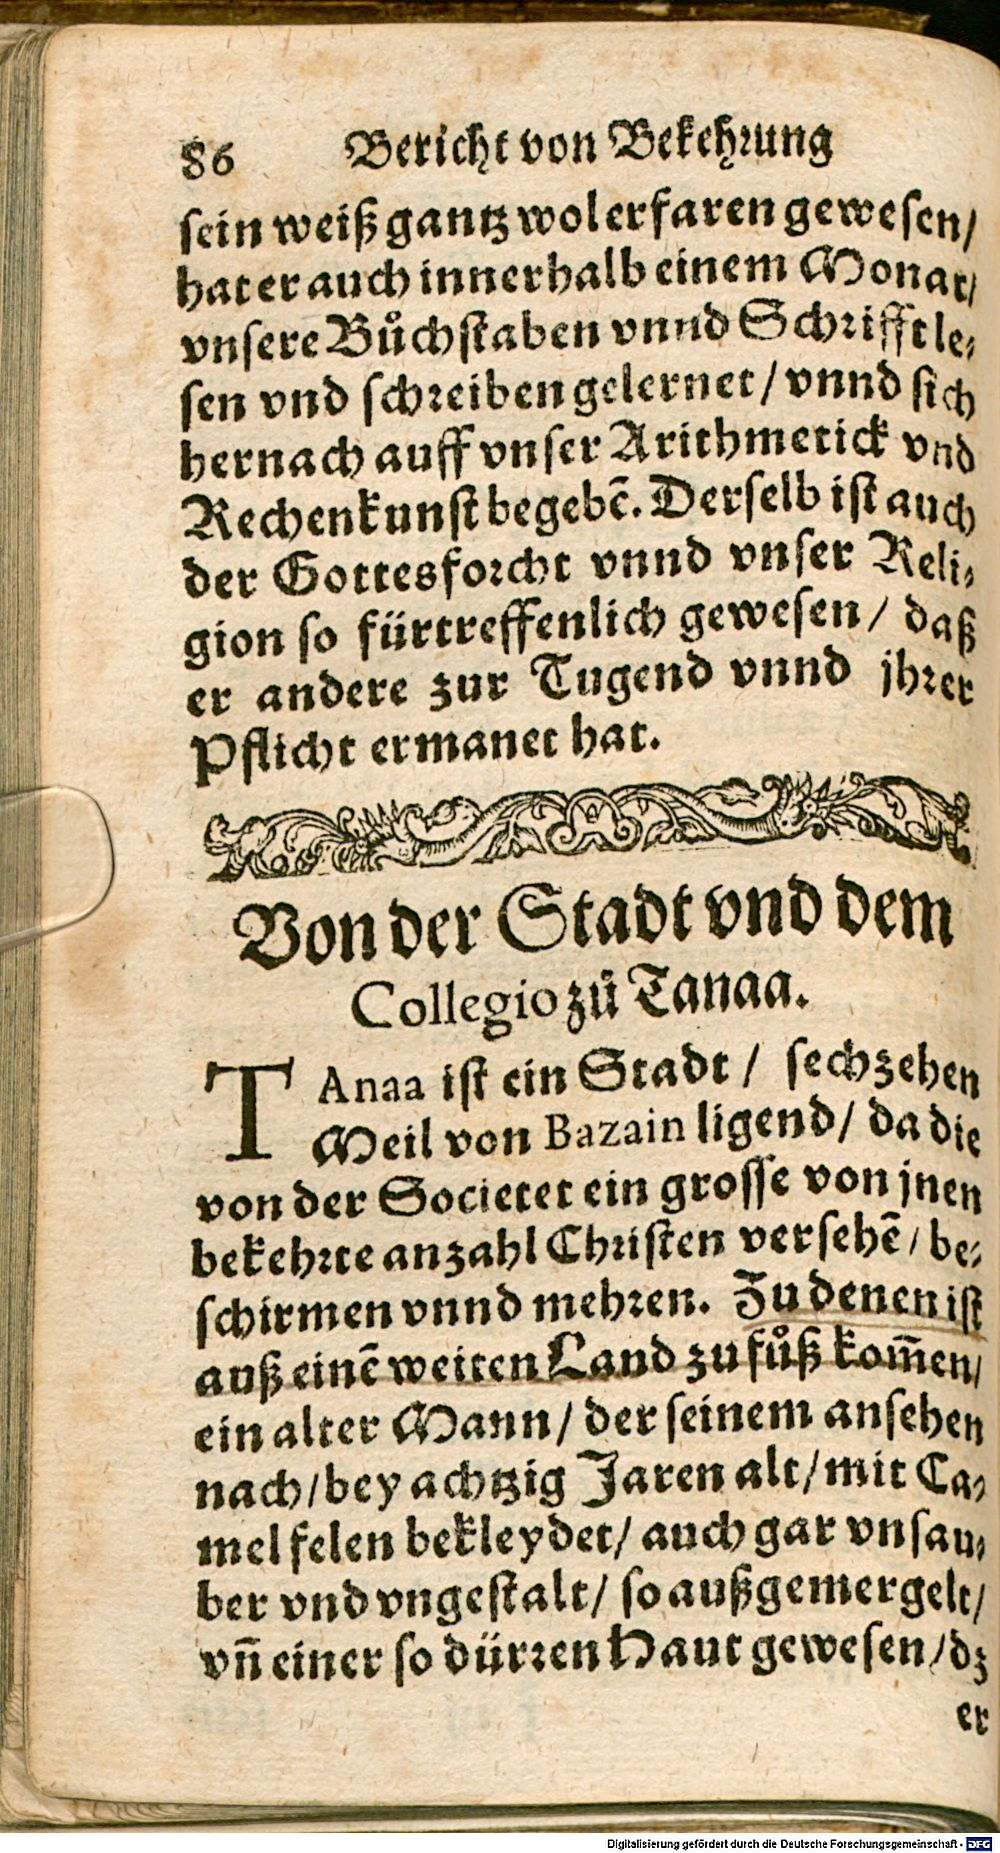 86 Bericht von Bekehrung
sein weiß gantz wol erfaren gewesen/
hat er auch innerhalb einem Monat/
vnsere Bůchstaben vnnd Schrifft le-
sen vnd schreiben gelernet/ vnnd sich
hernach auff vnser Arithmetick vnd
Rechenkunst begebē. Derselb ist auch
der Gottesforcht vnnd vnser Reli-
gion so fürtreffenlich gewesen/ daß
er andere zur Tugend vnnd jhrer
Pflicht ermanet hat.
Von der Stadt vnd dem
Collegio zů Tanaa.
TAnaa ist ein Stadt/ sechzehen
Meil von Bazain ligend/ da die
von der Societet ein grosse von jnen
bekehrte anzahl Christen versehē/ be-
schirmen vnnd mehren. Zu denen ist
auß einē weiten Land zu fůß kom̄en/
ein alter Mann/ der seinem ansehen
nach/ bey achtzig Jaren alt/ mit Ca-
mel felen bekleydet/ auch gar vnsau-
ber vnd vngestalt/ so außgemergelt/
vn̄ einer so dürren Haut gewesen/ dz
er
Digitalisierung gefördert durch die Deutsche Forschungsgemeinschaft - DFG